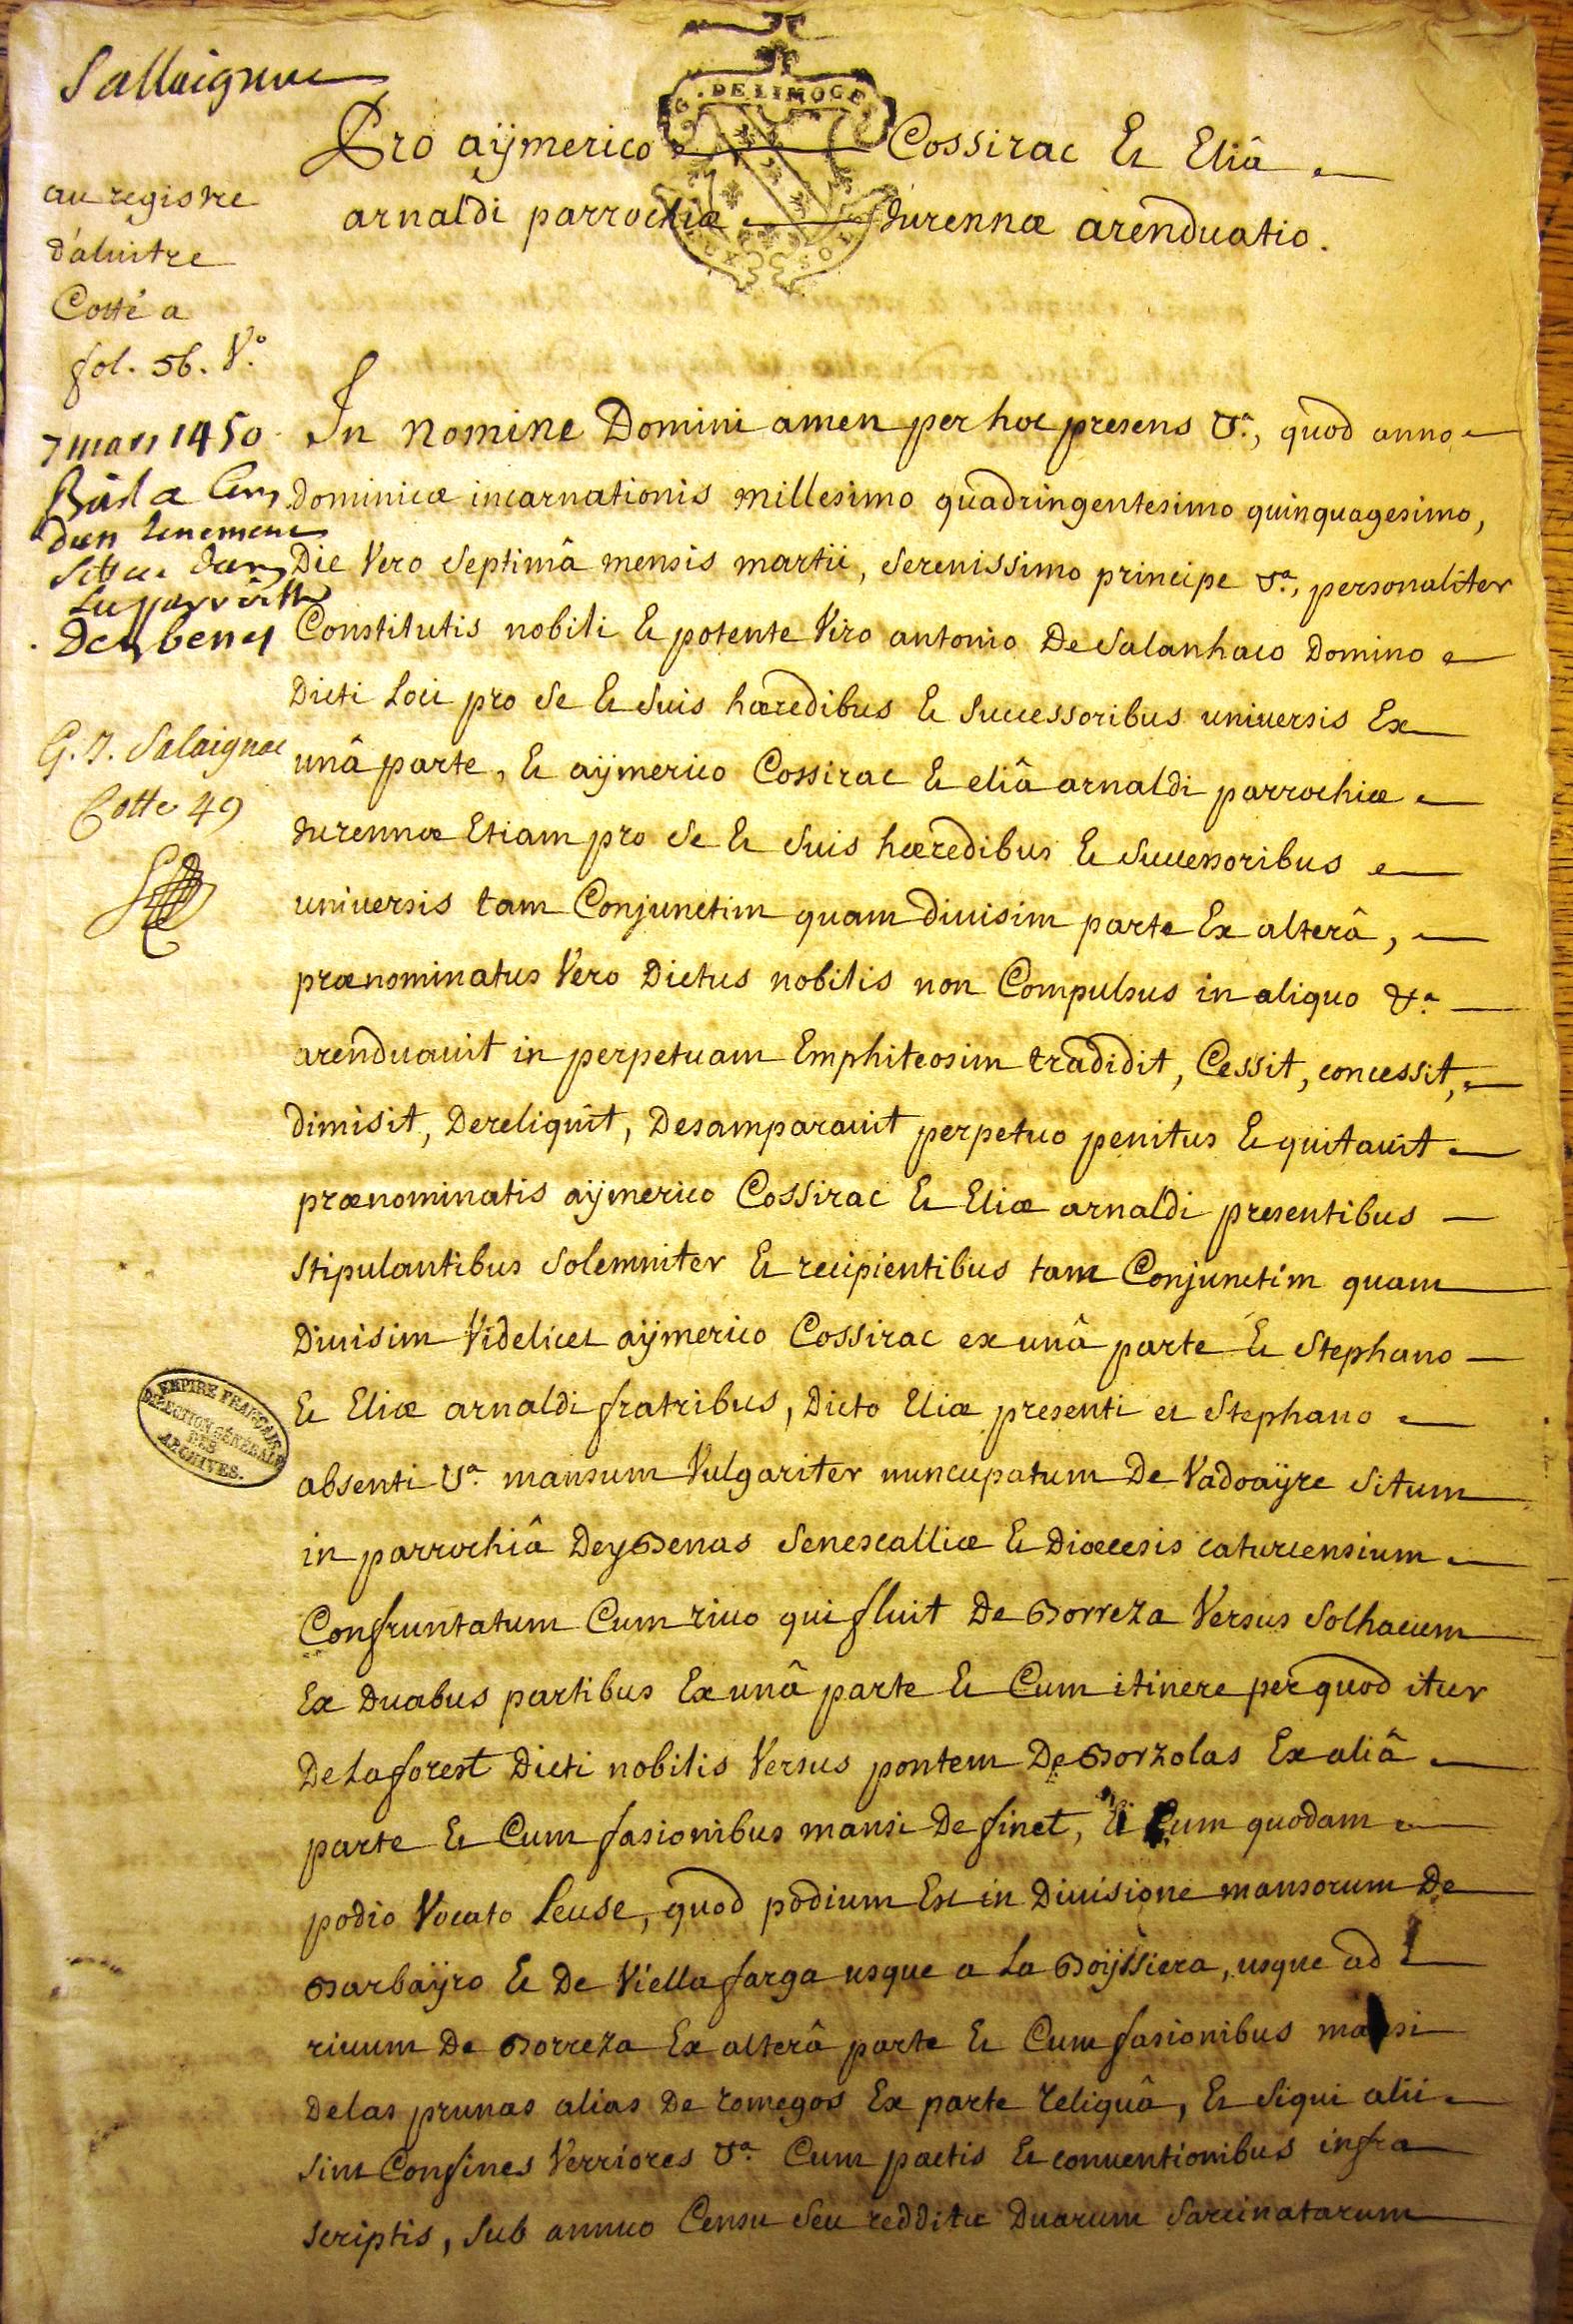 Sallaignac
G. DE LIMOGE
Pro aÿmerico Cossirac Et Eliâ
arnaldi parrochiæ turennæ arenduatio.
au registre
d'aluitre
Cotté a
fol. 56. V.º
7 mars 1450
Bail a Cens
dun tenement
Situe dans
La parroisse
Deybenes
G. J. Salaignac
Cotte 49
In nomine Domini amen per hoc presens &.ª, quod anno
Dominicæ incarnationis millesimo quadringentesimo quinquagesimo,
Die Vero Septimâ mensis martii, Serenissimo principe &.ª, personaliter
Constitutis nobili Et potente Viro antonio De Salanhaco Domino
Dicti Loci pro Se Et Suis hæredibus Et Successoribus universis Ex
unâ parte, Et aÿmerico Cossirac Et eliâ arnaldi parrochiæ
turennæ Etiam pro Se Et Suis hæredibus Et Successoribus
universis tam Conjunctim quam divisim parte Ex alterâ,
prænominatus Vero Dictus nobilis non Compulsus in aliquo &.ª
arenduavit in perpetuam Emphiteosim tradidit, Cessit, concessit,
dimisit, Dereliquit, Desamparavit perpetuo penitus Et quitavit
prænominatis aÿmerico Cossirac Et Eliæ arnaldi presentibus
Stipulantibus Solemniter Et recipientibus tam Conjunctim quam
Divisim Videlicet aÿmerico Cossirac ex unâ parte Et Stephano
Et Eliæ arnaldi fratribus, Dicto Eliæ presenti et Stephano
absenti &.ª mansum Vulgariter nuncupatum De Vadoaÿre Situm
in parrochiâ DeyBenas Senescalliæ Et Diœcesis caturcensium
Confruntatum Cum rivo qui fluit De Borreza Versus Solhacum
Ex Duabus partibus Ex unâ parte Et Cum itinere per quod itur
De Laforest Dicti nobilis Versus pontem De Borzolas Ex aliâ
parte Et Cum fasionibus mansi De finet, Et Cum quodam
podio Vocato Leuse, quod podium Est in Divisione mansorum De
Barbaÿro Et De Viellafarga usque a La Boÿssiera, usque ad
rivum De Borreza Ex alterâ parte Et Cum fasionibus mansi
Delas prunas alias De romegos Ex parte reliquâ, Et Siqui alii
Sint Confines Verriores &.ª Cum pactis Et conventionibus infra
scriptis, Sub annuo Censu Seu redditu Duarum Sarcinatarum
EMPIRE FRANÇAIS
DIRECTION GÉNÉRALE
DES
ARCHIVES.